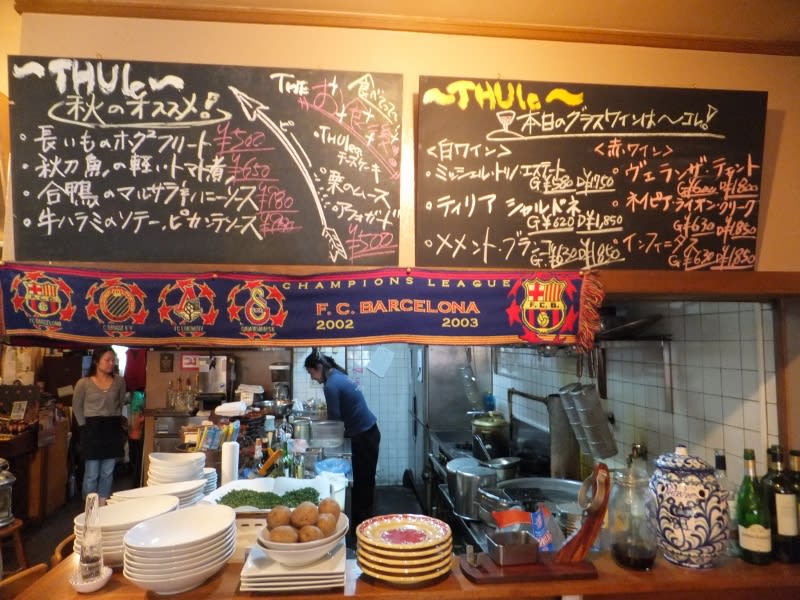 ～THULe～
秋のオススメ!
・長いものホクホクフリート ¥500
・秋刀魚の軽いトマト煮 ¥650
・合鴨のマルサラ
ハニーソース
・牛ハラミのソテー、ピカンテソース
THE お食事
食べてって
・THULeの
チーズケーキ
・栗のムース
・アフォガード
¥500
～THULe～
本日のグラスワインは〜コレ!
<白ワイン>
・ミッシェル・トリノ・エステート
G¥580 D¥1750
・ティリア シャルドネ
G¥620 D¥1,850
・メメント・ブランコ
G¥630 D¥1850
<赤ワイン>
・ヴェランザ・ティント
G¥600 D¥1800
・ネイピア・ライオン・クリーク
G¥630 D¥1850
・インフィニタス
G¥630 D¥1850
CHAMPIONS LEAGUE
F.C. BARCELONA
2002 2003
F.C.B.